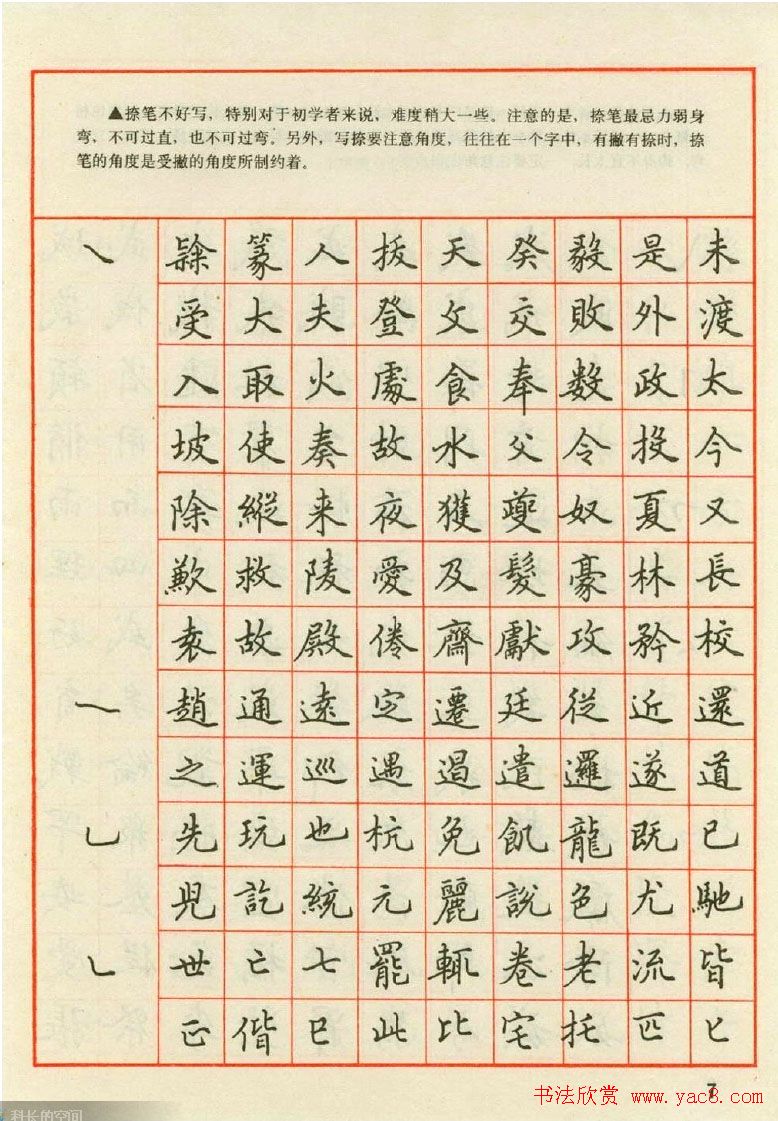 ▲捺笔不好写，特别对于初学者来说，难度稍大一些。注意的是，捺笔最忌力弱身
弯，不可过直，也不可过弯。另外，写捺要注意角度，往往在一个字中，有撇有捺时，捺
笔的角度是受撇的角度所制约着。
篆人拔天癸毅是未
受大夫登文交敗外渡
入取火處食奉数政太
坡使奏故水父令投今
除縱来夜獲夔奴夏又
歉救陵愛及髮豪林長
袁故殿倦齋獻攻矜校
趙通遠定遷廷從近還
之運巡遇遏遣邏遂道
先玩也杭免飢龍既已
兒訖統元麗説色尤馳
世亡七罷輒卷老流皆
正偕巳此比宅托匹匕
7
书法欣赏 www.yac8.com
科长的空间